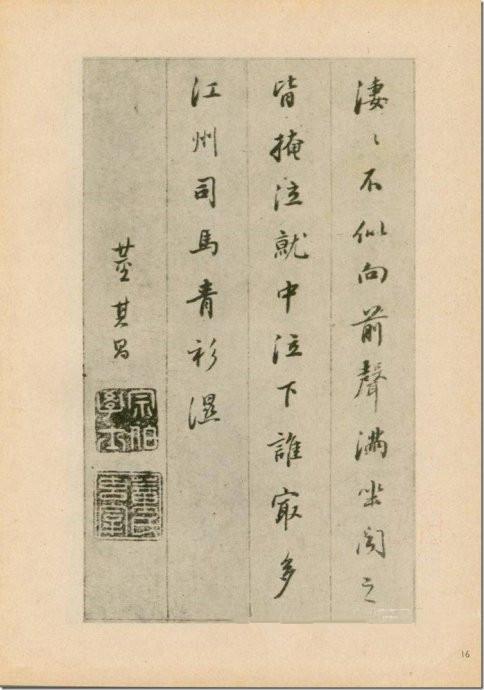 淒〻不似向前聲滿坐聞之
皆掩泣就中泣下誰冣多
江州司馬青衫濕
董其昌
宗伯學士
董氏玄宰
16